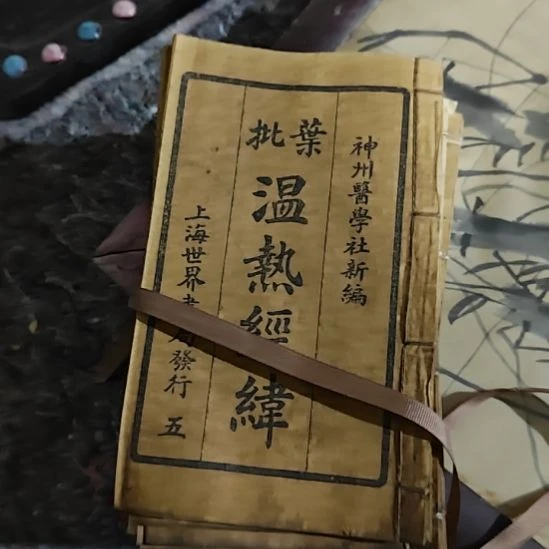 神州醫學社新編
葉批
温熱經緯
上海世界書局發行 五